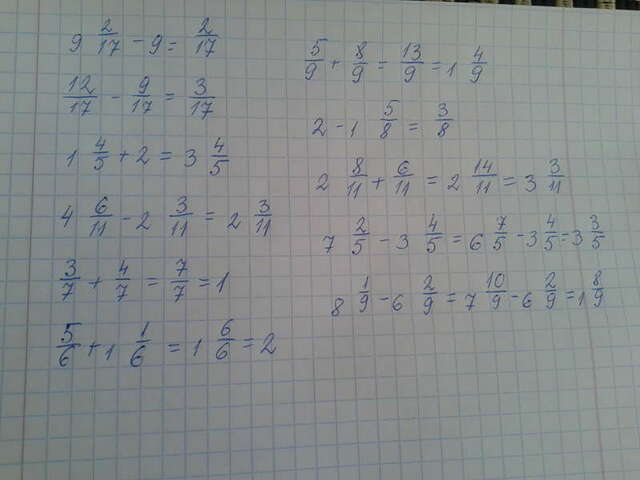 9 2/17 - 9 = 2/17
12/17 - 9/17 = 3/17
1 4/5 + 2 = 3 4/5
4 6/11 - 2 3/11 = 2 3/11
3/7 + 4/7 = 7/7 = 1
5/6 + 1 1/6 = 1 6/6 = 2
5/9 + 8/9 = 13/9 = 1 4/9
2 - 1 5/8 = 3/8
2 8/11 + 6/11 = 2 14/11 = 3 3/11
7 2/5 - 3 4/5 = 6 7/5 - 3 4/5 = 3 3/5
8 1/9 - 6 2/9 = 7 10/9 - 6 2/9 = 1 8/9